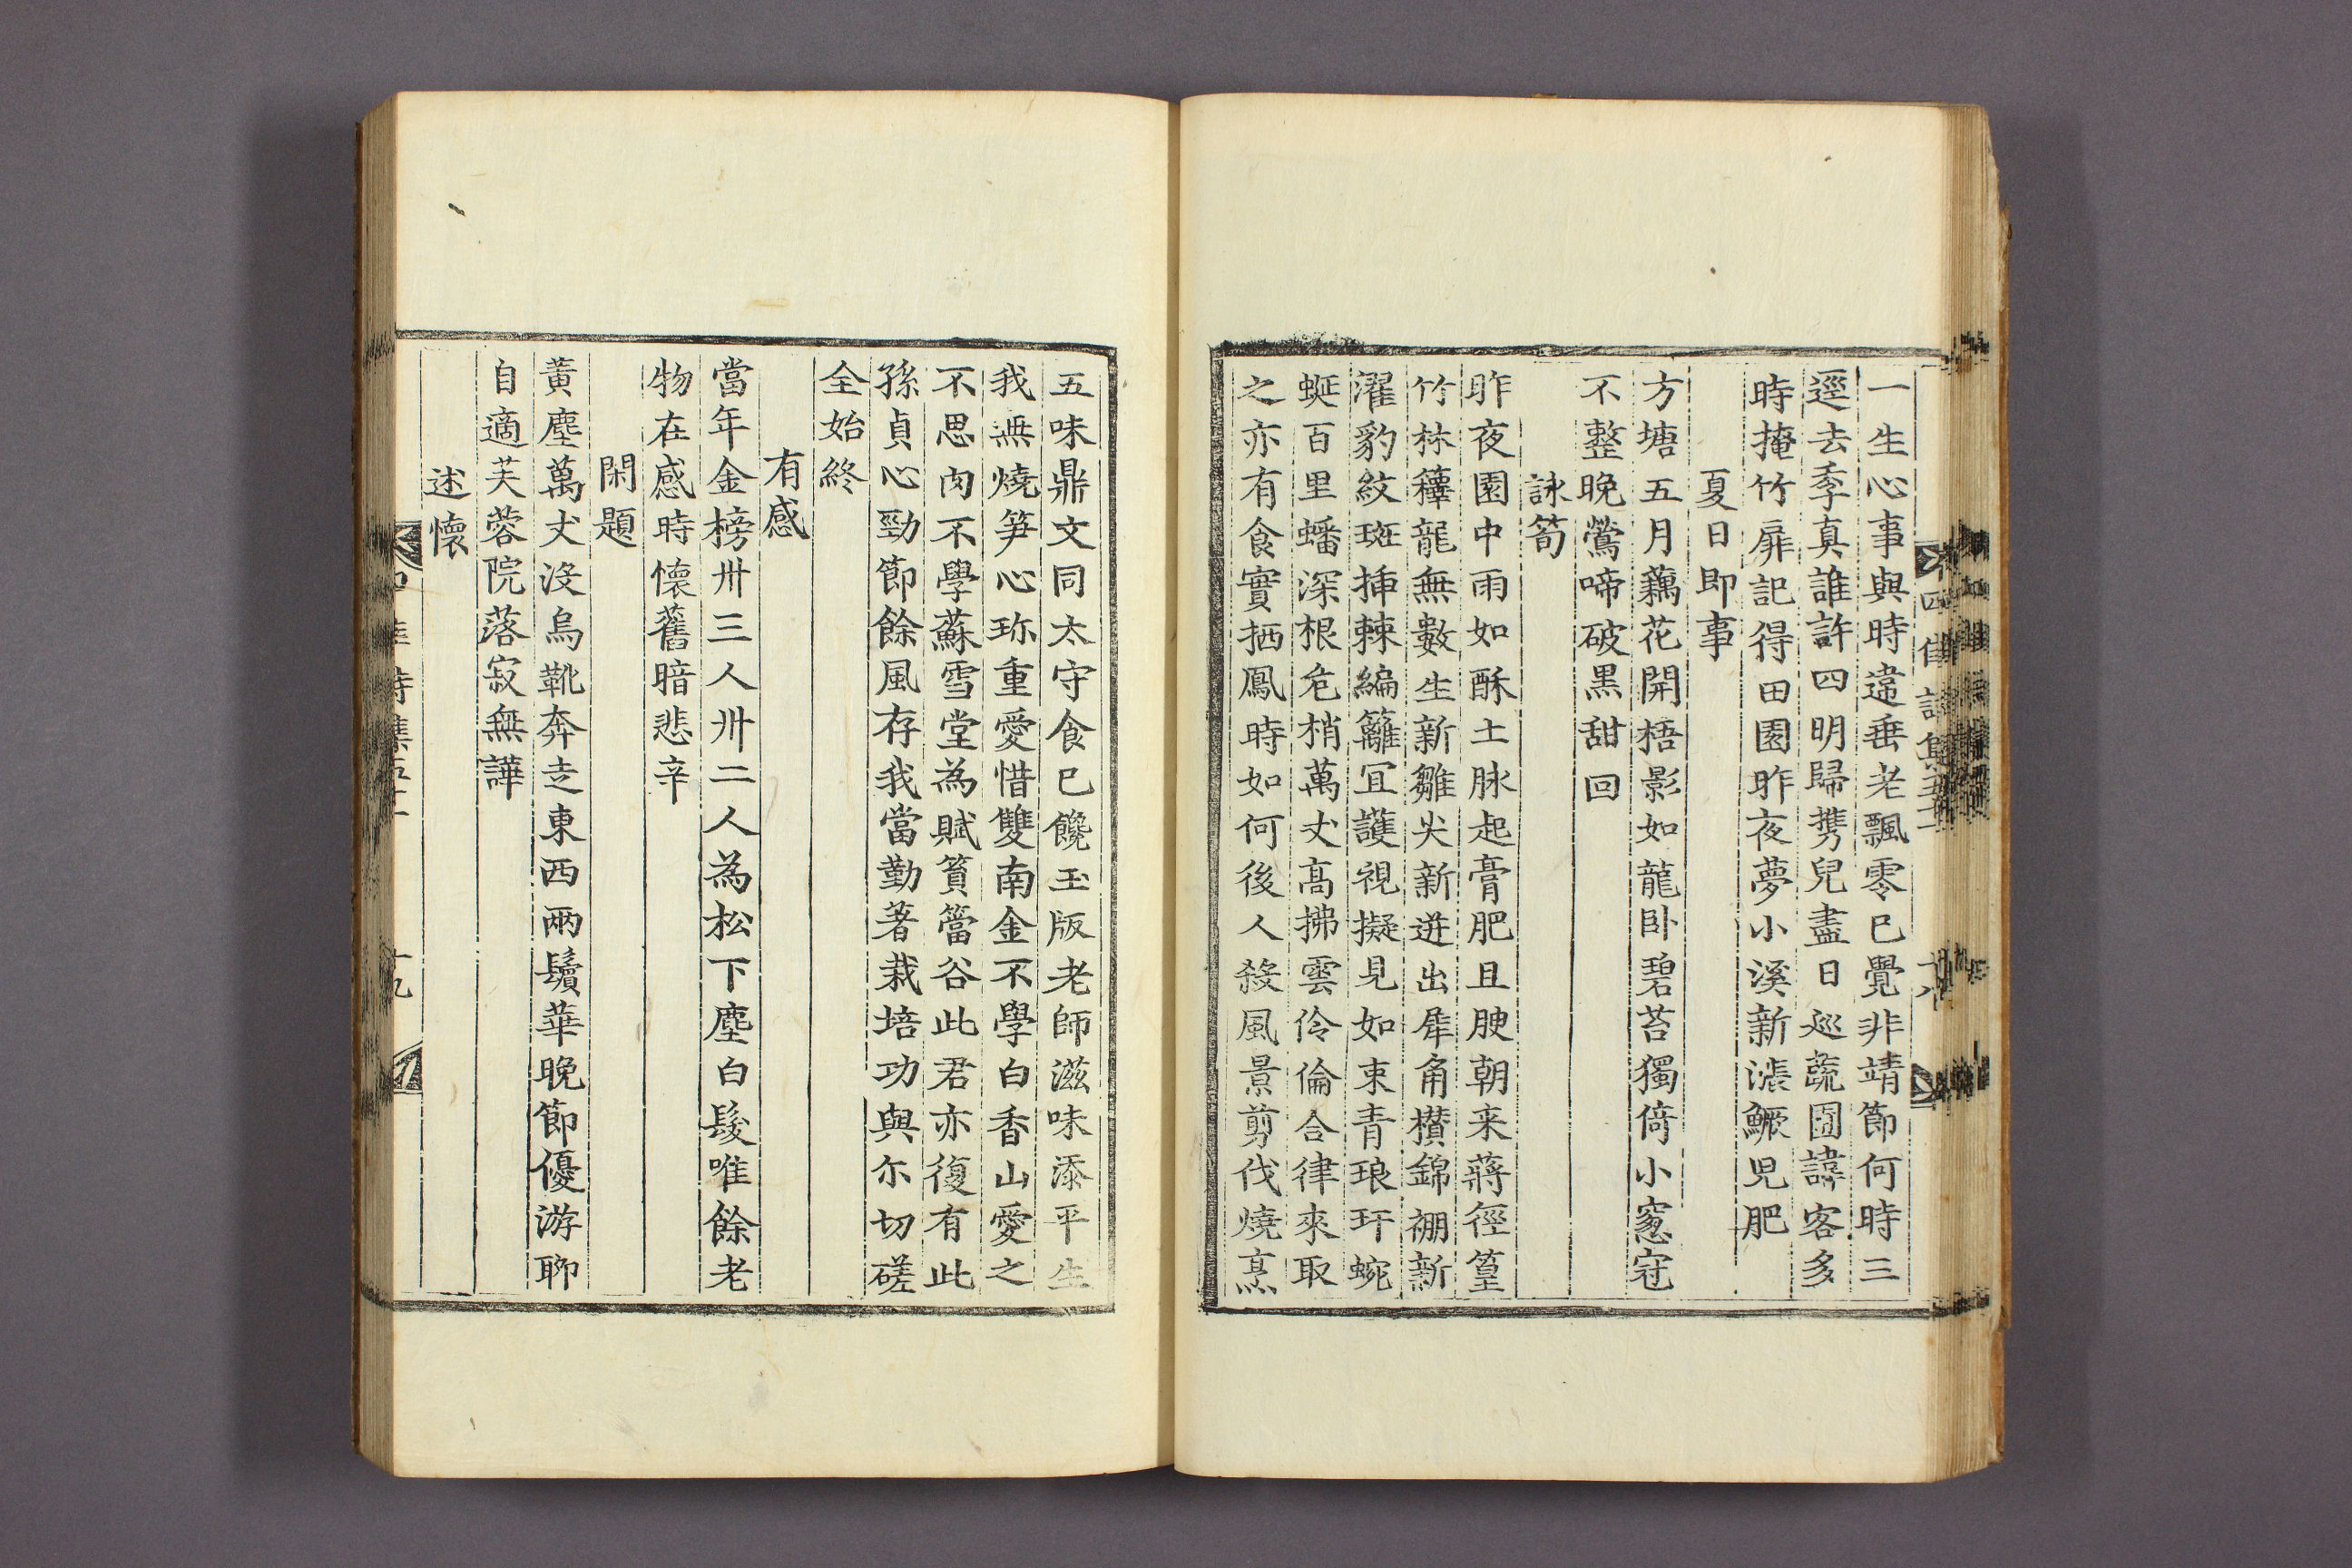 一生心事與時違垂老飄零已覺非靖節何時三
逕去季真誰許四明歸携兒盡日巡蔬圃諱客多
時掩竹扉記得田園昨夜夢小溪新漲鱖兒肥
夏日即事
方塘五月藕花開梧影如龍卧碧苔獨倚小窓冠
不整晚鶯啼破黒甜回
詠筍
昨夜園中雨如酥土脉起膏肥且腴朝来蔣徑篁
竹林籜龍無數生新雛尖新迸出犀角攅錦裯新
濯豹紋斑揷棘編籬冝護視擬見如束青琅玕蜿
蜒百里蟠深根危梢萬丈髙拂雲伶倫合律來取
之亦有食實栖鳳時如何後人殺風景剪伐燒烹
五味鼎文同太守食已饞玉版老師滋味添平生
我無燒笋心珎重愛惜雙南金不學白香山愛之
不思肉不學蘇雪堂為賦篔簹谷此君亦復有此
孫貞心勁節餘風存我當勤著栽培功與尓切磋
全始終
有感
當年金榜卅三人卅二人為松下塵白髮唯餘老
物在感時懷舊暗悲辛
閑題
黄塵萬丈沒烏靴奔走東西兩鬢華晚節優游聊
自適芙蓉院落寂無譁
述懷
四佳詩集五十
十九